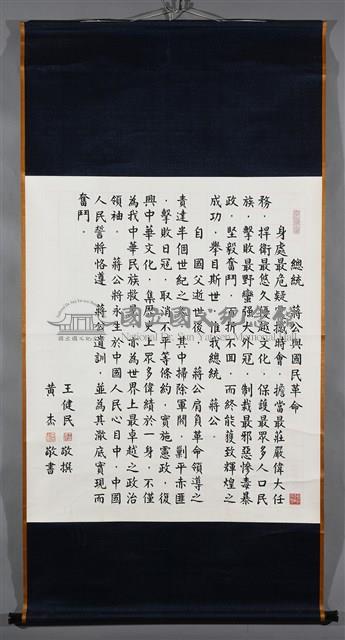 總統　蔣公與國民革命
身處最危疑震撼時會，擔當最莊嚴偉大任
務，捍衛最悠久優越文化，保護最眾多人口民
族，擊敗最野蠻強大外寇，制裁最邪惡慘毒暴
政，堅毅奮鬥，百折不回，而終能獲致輝煌之
成功，舉目斯世，惟我總統　蔣公。
自　國父逝世後，　蔣公肩負革命領導之
責達半個世紀之久，其中掃除軍閥，剿平赤匪
，擊敗日寇，取消不平等條約，實施憲政，復
興中華文化，集歷史上眾多偉績於一身，不僅
為我中華民族救星，亦為世界上最卓越之政治
領袖。　蔣公將永生於中國人民心目中，中國
人民誓將恪遵　蔣公遺訓，並為其澈底實現而
奮鬥。
王健民　敬撰
黃杰　敬書
國立國父紀念館
Yat-sen Memorial Hall